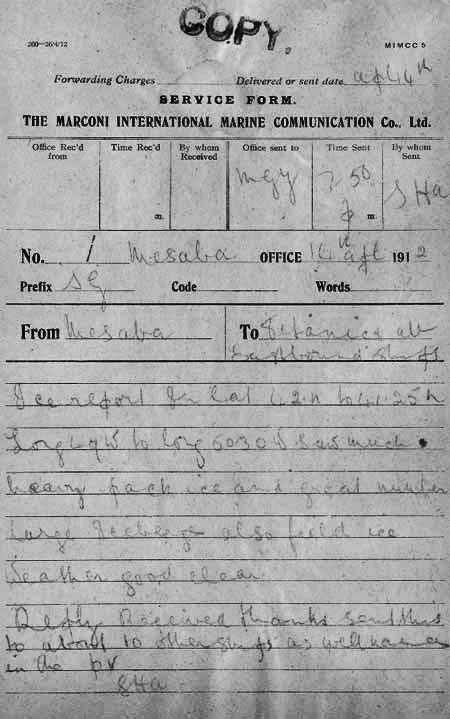 COPY.
200—26/4/12
MIMCC 5
Forwarding Charges Delivered or sent date apl 14th
SERVICE FORM.
THE MARCONI INTERNATIONAL MARINE COMMUNICATION Co., Ltd.
Office Rec'd from Time Rec'd By whom Received Office sent to Time Sent By whom Sent
m. MGY 7.50 p m. SHa
No. 1 Mesaba OFFICE 14th apl 1912
Prefix SG Code Words
From Mesaba To Titanic & all
Eastbound ships
Ice report In Lat 42.n to 41.25n
Long 49W to long 5030W Saw much
heavy pack ice and great number
large Icebergs also field ice
Weather good clear
Reply Received thanks sent this
to about 10 other ships as well
in the pv
SHa